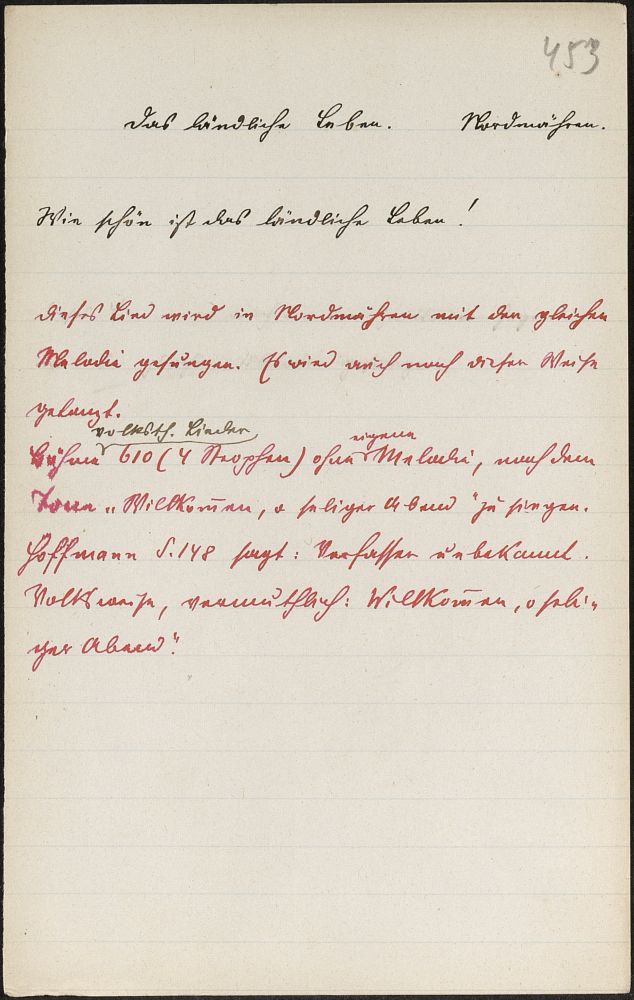 453
Das ländliche Leben. Nordmähren.
Wie schön ist das ländliche Leben!
Dieses Lied wird in Nordmähren mit der gleichen
Melodie gesungen. Es wird auch nach dieser Weise
getanzt.
volksth. Lieder eigene
Böhme 610 (4 Strophen) ohne Melodie, nach dem
Tone „Willkom̅en, o seliger Abend" zu singen.
Hoffmann S. 148 sagt: Verfasser unbekannt.
Volksweise, vermuthlich: Willkom̅en, o seli-
ger Abend".